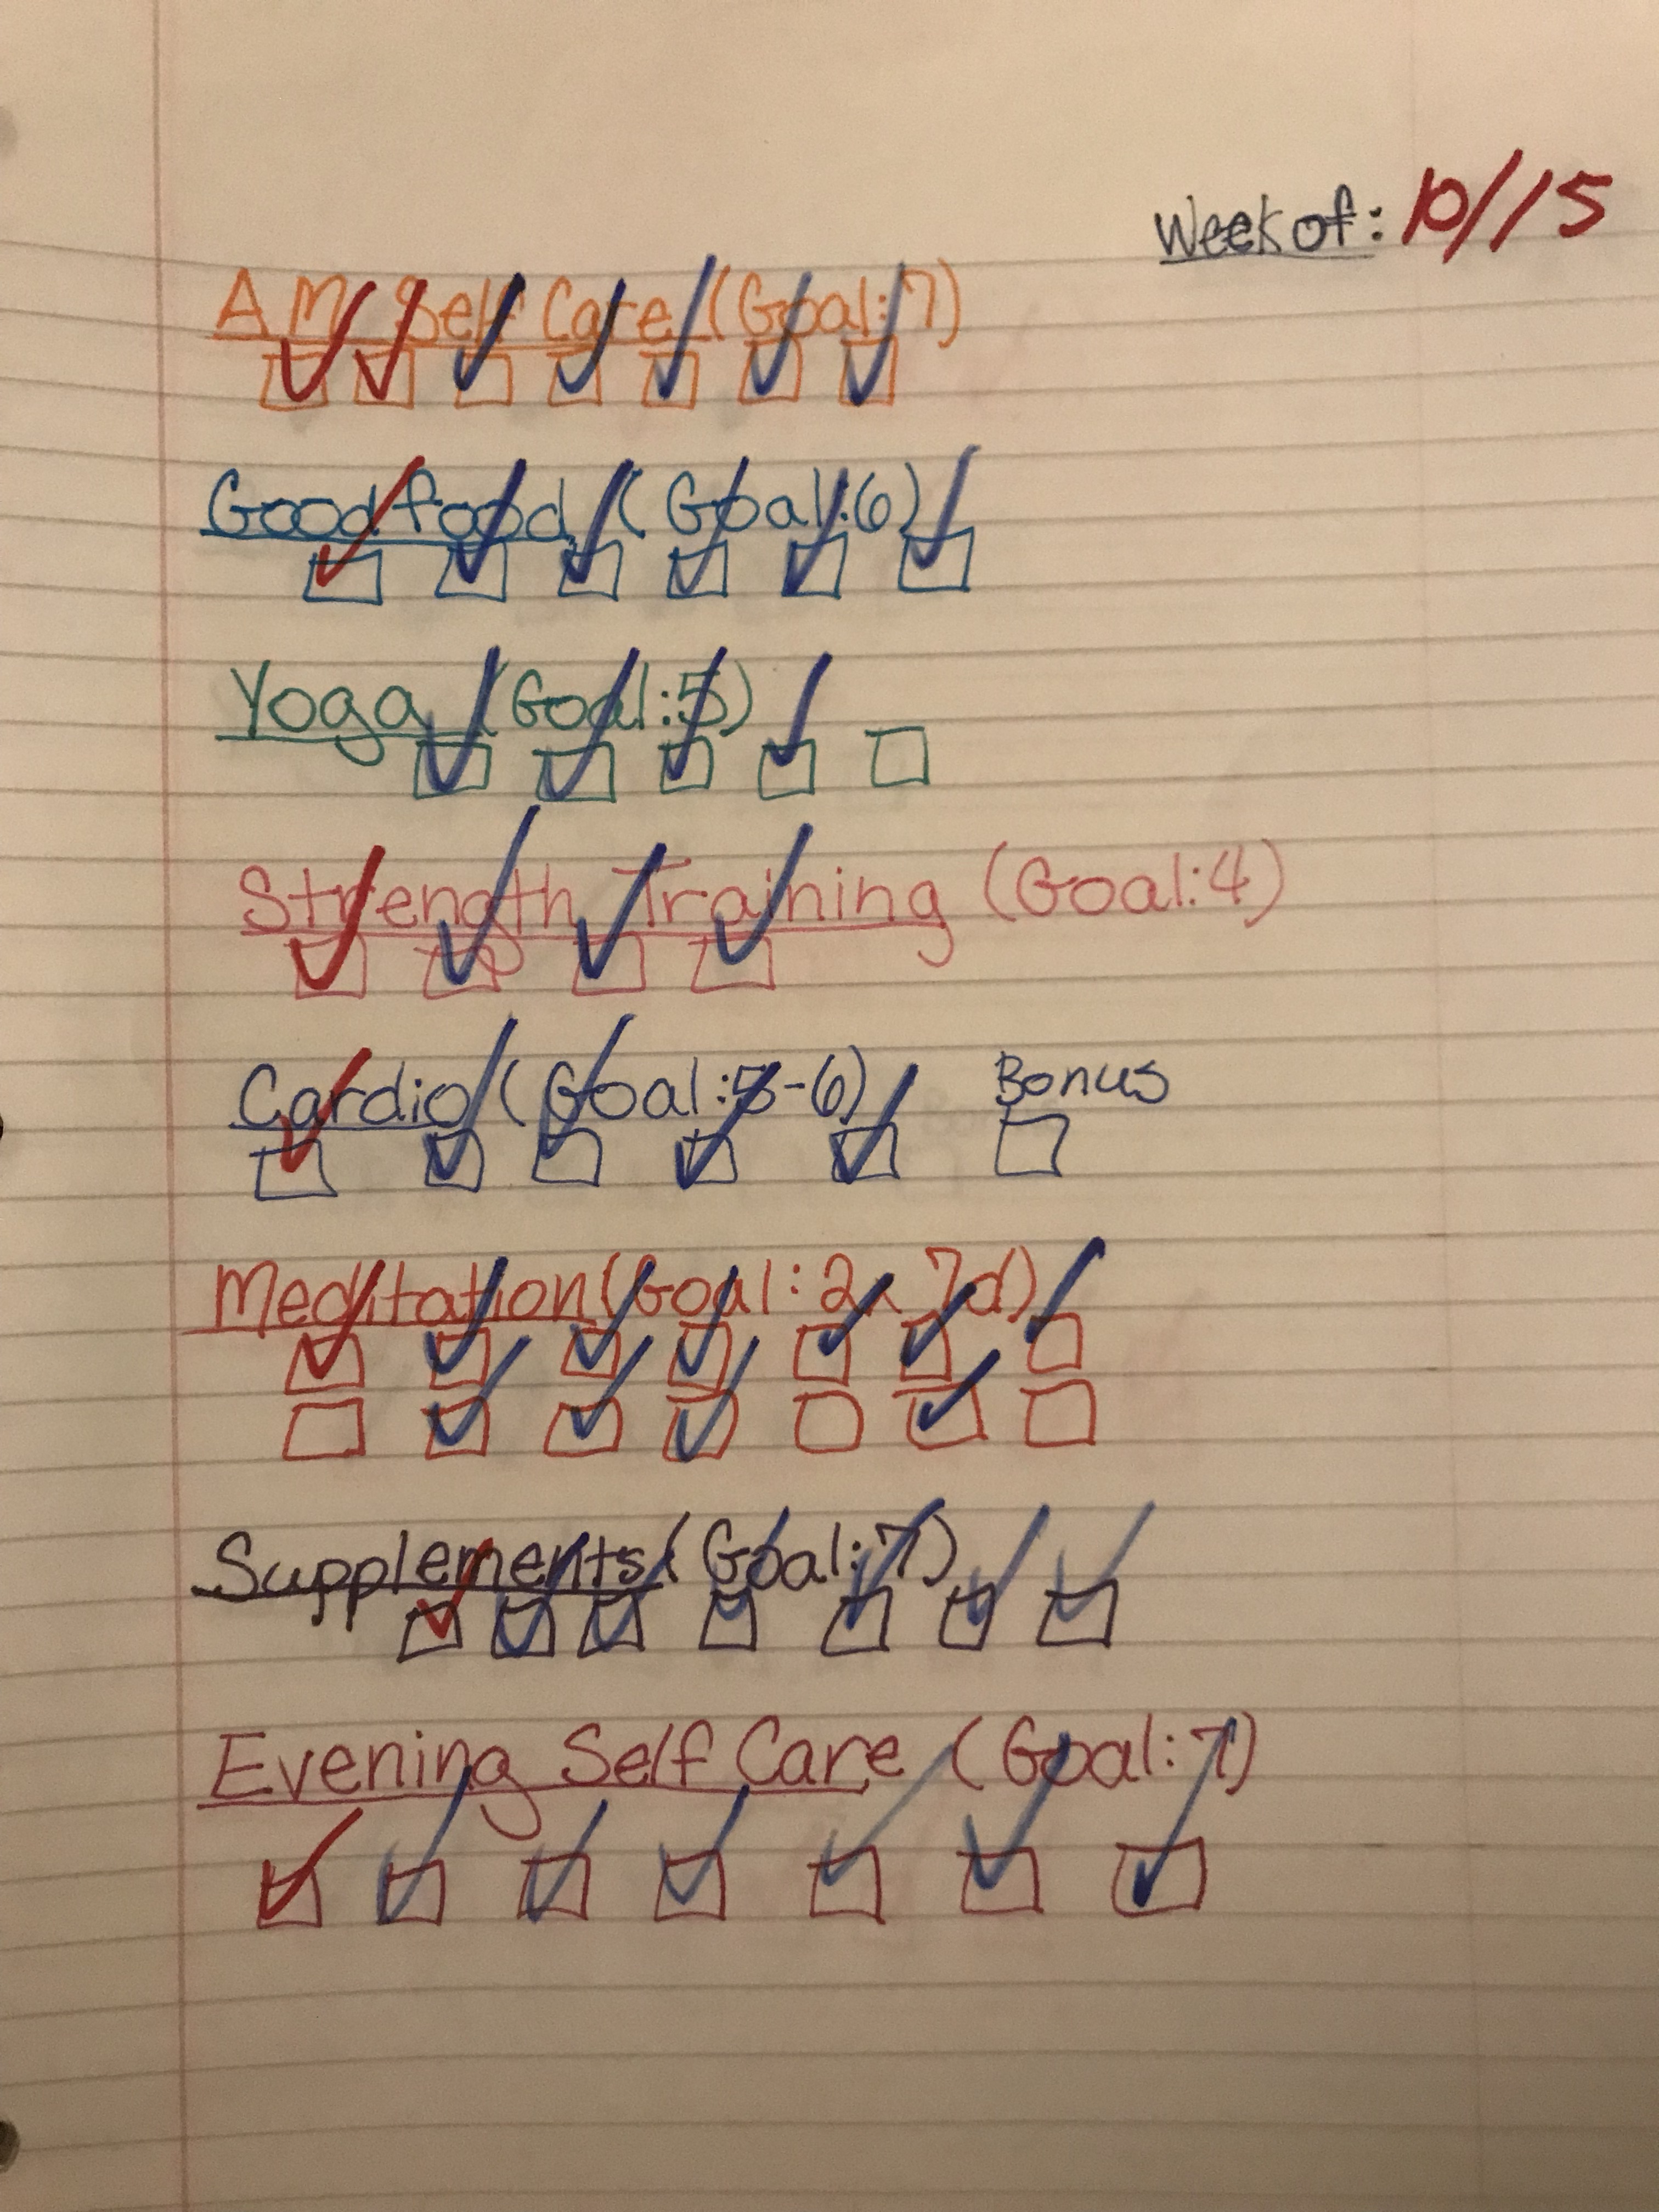 Week of: 10/15
AM Self Care (Goal:7)
Good food (Goal:6)
Yoga (Goal:5)
Strength Training (Goal:4)
Cardio (Goal:5-6) Bonus
Meditation (Goal: 2x 7d)
Supplements (Goal:7)
Evening Self Care (Goal:7)